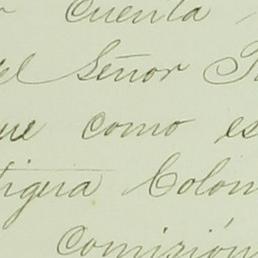 Cuenta
el Señor
ue como es
tigua Colon
Comisión